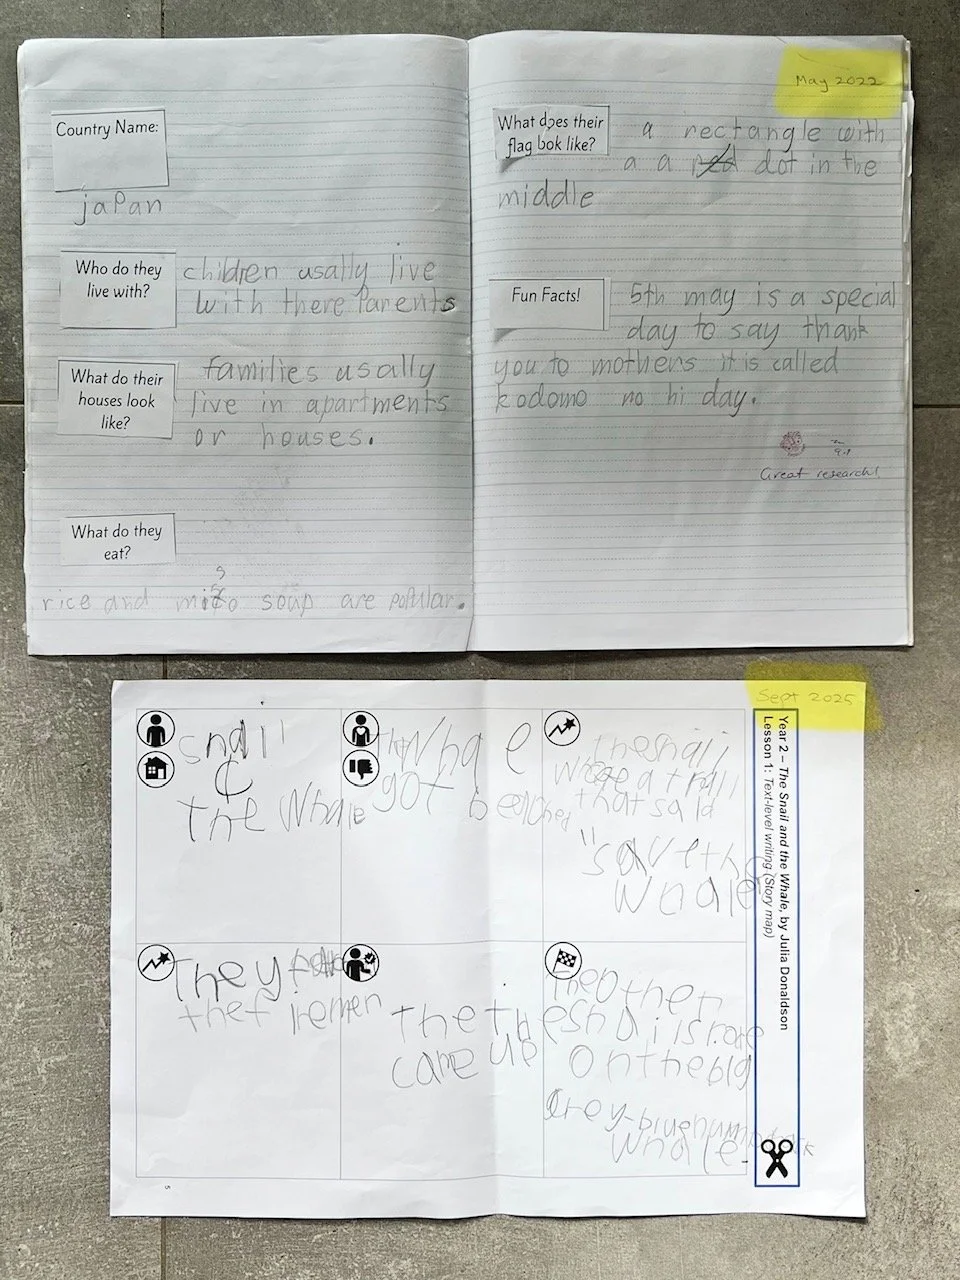 May 2022
Country Name:
japan
Who do they
live with?
children usally live
with there parents
What do their
houses look
like?
families usally
live in apartments
or houses.
What do they
eat?
rice and miso soup are popular.
What does their
flag look like?
a rectangle with
a a red dot in the
middle
Fun Facts!
5th may is a special
day to say thank
you to mothers it is called
kodomo no hi day.
Great research!
Sept 2025
Year 2 – The Snail and the Whale, by Julia Donaldson
Lesson 1: Text-level writing (Story map)
snail
&
the Whale
the Whale
got beached
the snail
a trail
that said
"save the
whale
They
the firemen
the
came up
The other
snails
on the big
Grey-blue humpback
whale.
5